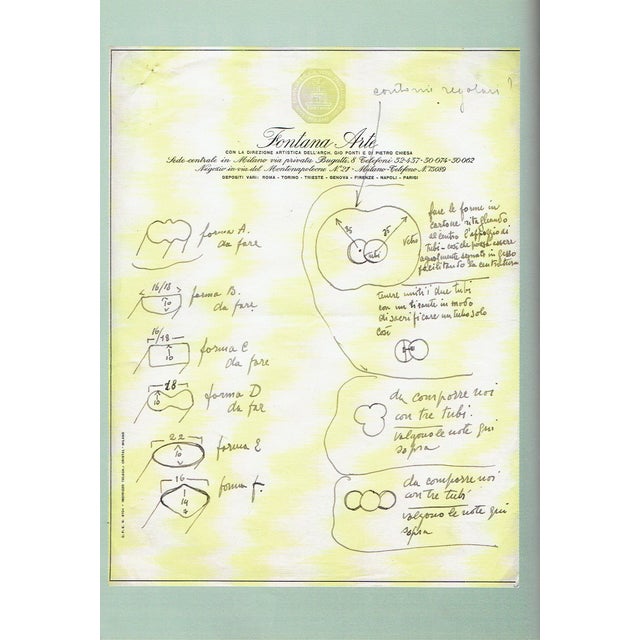 contorno regolari ?
Fontana Arte
CON LA DIREZIONE ARTISTICA DELL'ARCH. GIO PONTI E DI PIETRO CHIESA
Sede centrale in Milano via privata Bugatti, 8 Telefoni 32-457-50 074-30 062
Negozio in via del Montenapoleone N. 21 - Milano - Telefono N. 75089
DEPOSITI VARI: ROMA - TORINO - TRIESTE - GENOVA - FIRENZE - NAPOLI - PARIGI
forma A.
da fare
16/18
10
forma B.
da fare
16/
18
10
forma C
da fare
18
10
forma D
da far
22
10
forma E
16
14
forma F.
35
25
Vetro
tubi
fare le forme in
cartone ritagliando
al centro l'appoggio di
tubi - così che possa essere
ugualmente segnato in gesso
facilitando la centratura
tenere uniti i due tubi
con un tirante in modo
di sacrificare un tubo solo
così
da comporre noi
con tre tubi.
valgono le note qui
sopra
da comporre noi
con tre tubi
valgono le note qui
sopra